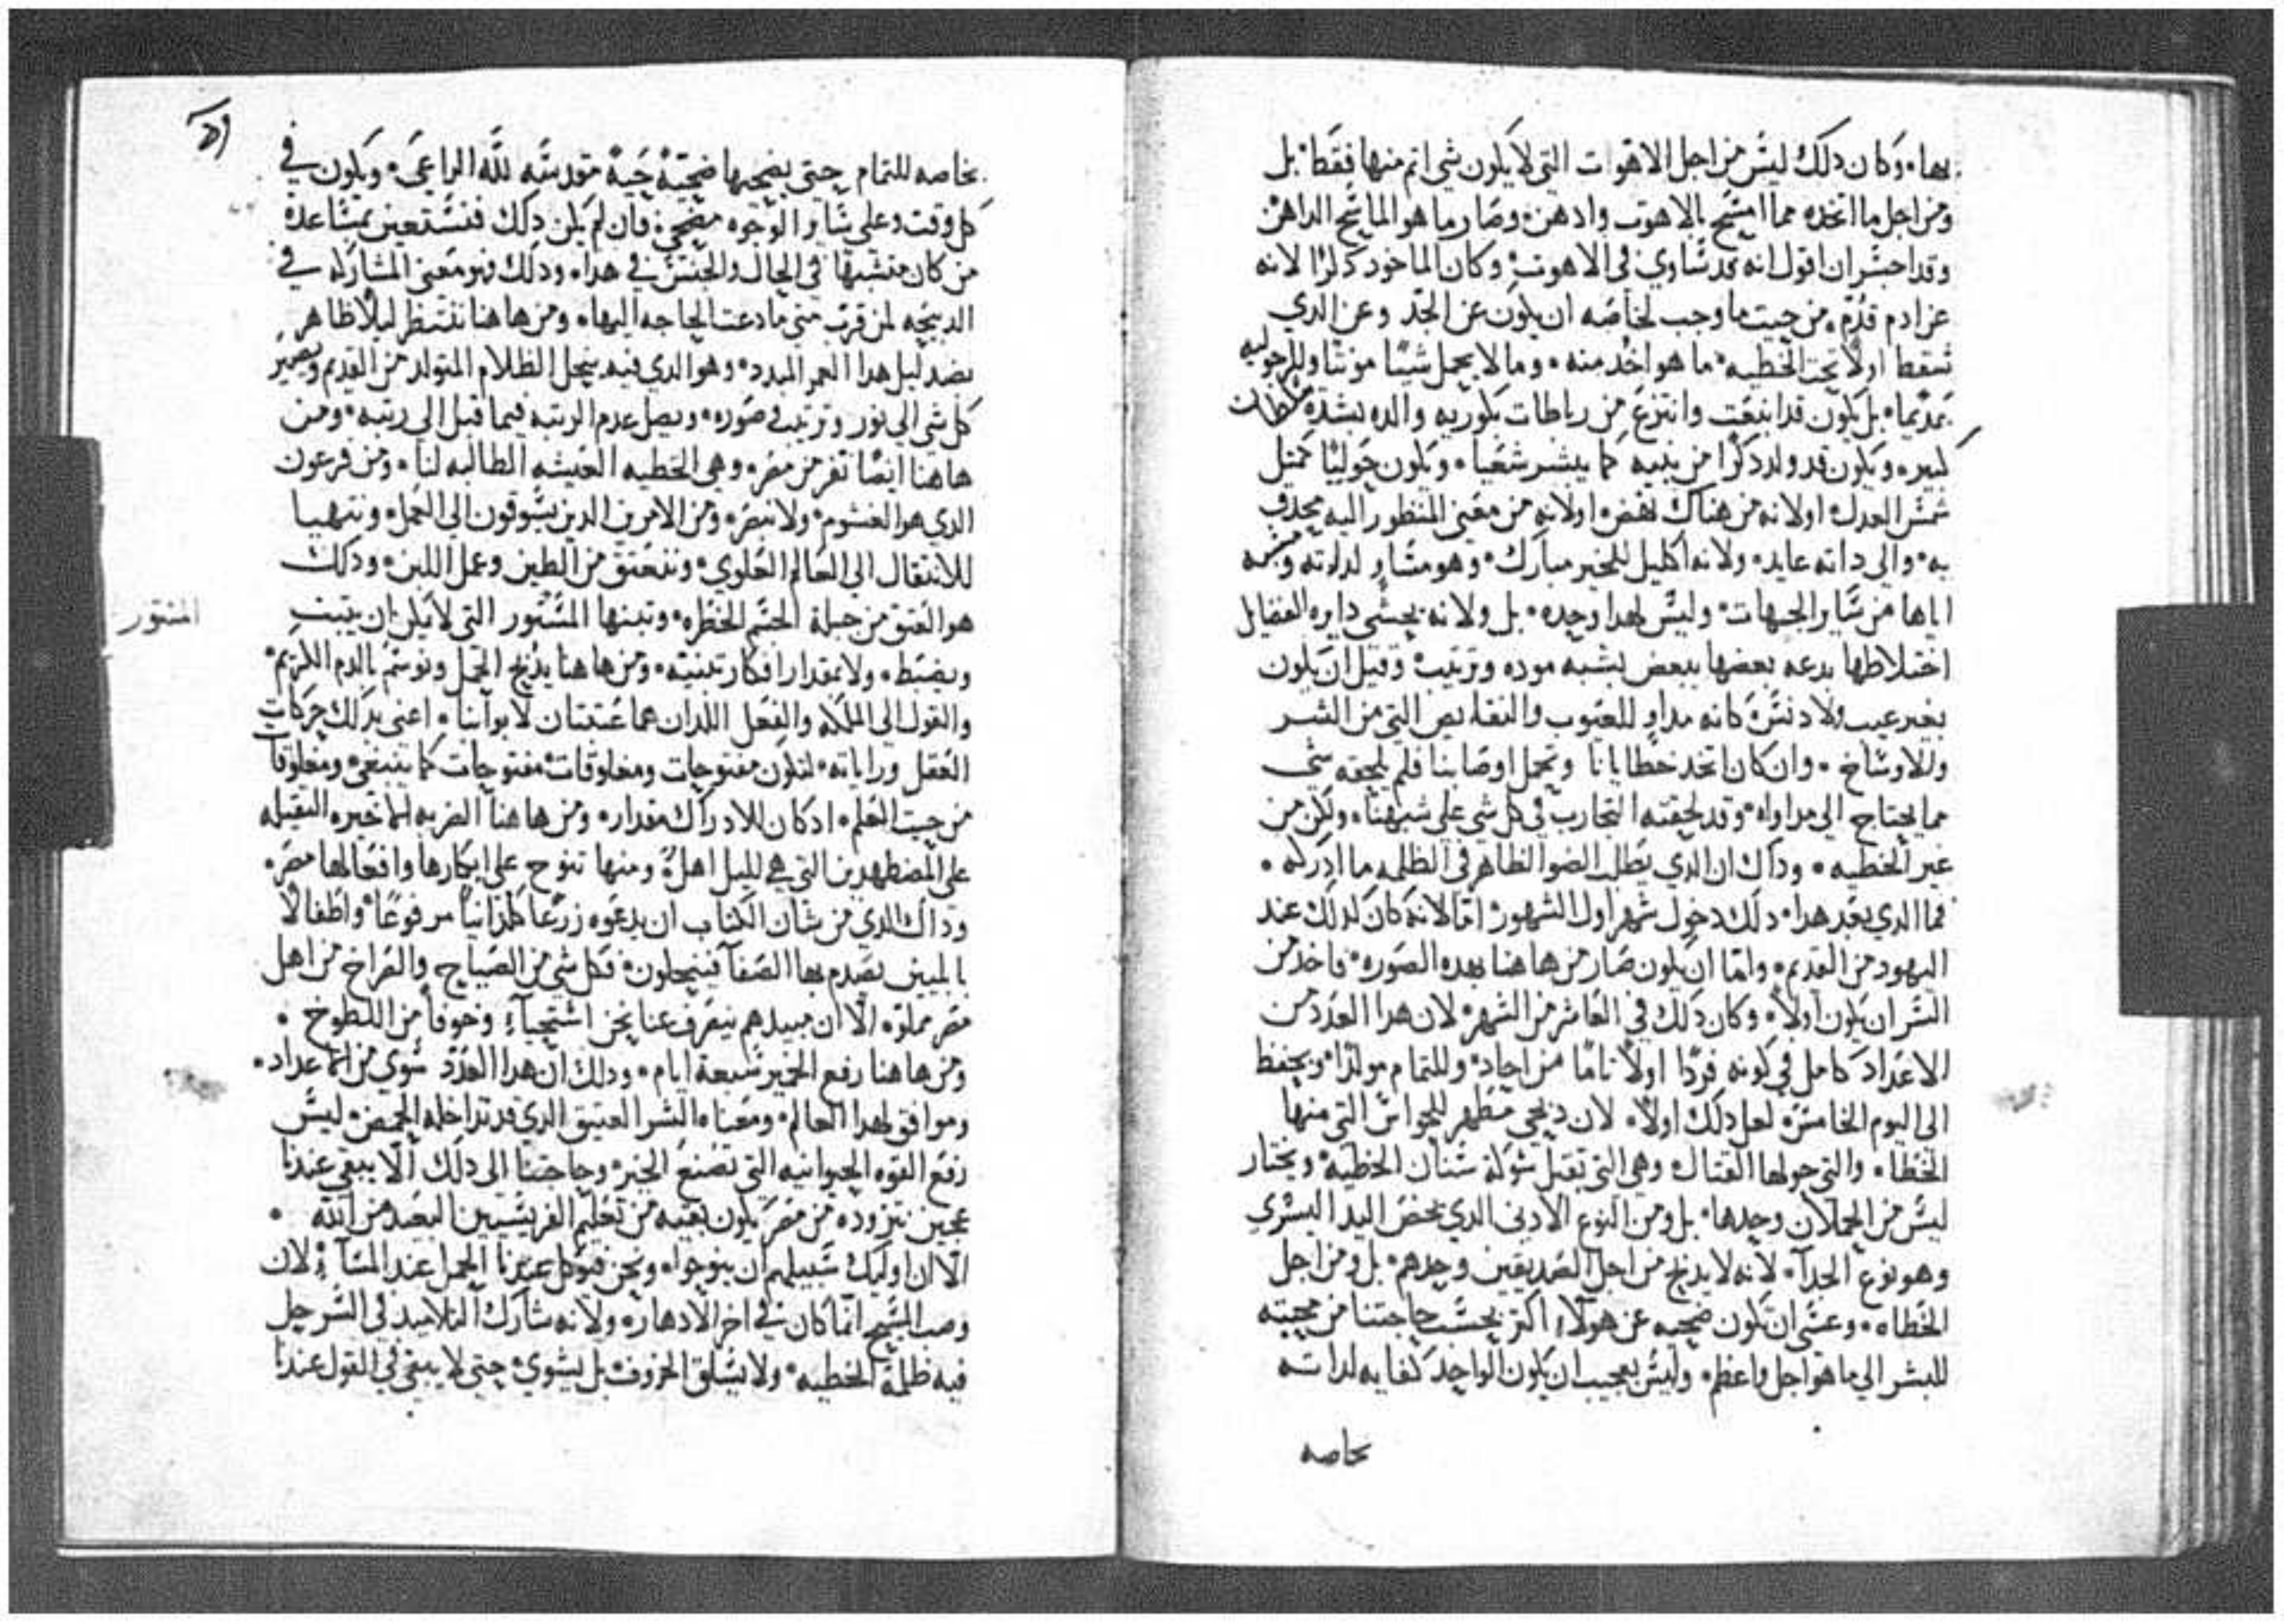 بها. وكان دلك ليس من اجل الاهوت التي لا يكون شي اتم منها فقط بل
ومن اجل ما اتخده مما امتسح بالاهوت وادهن وصار ما هو الماسح الداهن
وقد احسر ان اقول انه قد تساوي في الاهوت وكان الماخود دكرًا لانه
عن ادم قدم من حيت ما وجب لخاصه ان يكون عن الجد وعن الدي
سقط اولا تحت الخطيه ما هو اخد منه وما لا يحمل شيًا مونتا وللرجوليه
عديما بل يكون قد انبعت وانتزع من رباطات بكوريه والده بشده
كبيره ويكون قد ولد دكرًا من نبيه كما يبشر شعيا ويكون حوليًا كمتل
شمس العدل اولانه من هناك نهض اولانه من معني المنظور اليه محدق
به والي داته عايد ولانه اكليل للخير مبارك وهو مساو لداته ومشبه
اياها من ساير الجهات وليس لهدا وحده بل ولانه يحشي دايره الفضايل
اختلاطها بدعه بعضها ببعض بشبه موده وترتيب وقيل ان يكون
بغير عيب ولا دنس كانه مداو للعيوب والنقايص التي من الشر
وللاوساخ وان كان اتخد خطايانا وتحمل اوصابنا فلم يلحقه شي
مما يحتاج الي مداواه وقد لحقته التجارب في كل شي علي شبهنا ولكن من
غير الخطيه وداك ان الدي يطلب الضو الظاهر في الظلمه ما ادركه
فما الدي بعد هدا دلك دخول شهر اول الشهور اما لانه كان كدلك عند
اليهود من القديم واما ان يكون صار من هاهنا بهده الصوره فاخد من
السر ان يكون اولاً وكان دلك في العاشر من الشهر لان هدا العدد من
الاعداد كامل في كونه فردًا اولاً تامًا من احاد وللتمام مولدًا ويحفظ
الي اليوم الخامس لعل دلك اولاً لان دبحي مطهر للحواس التي منها
الخطا والتي حولها القتال وهي التي تقبل شوكة سنان الخطيه ويختار
ليس من الحملان وحدها بل ومن النوع الادني الدي يخص اليد اليسري
وهو نوع الجدا لانه لا يدبح من اجل الصديقين وحدهم بل ومن اجل
الخطاه وعسي ان تكون ضحيه عن هولاء اكتر بحسب حاجتنا من محبته
للبشر الي ما هو اجل واعظم وليس بعجيب ان يكون الواحد كفايه لداته
خاصه
بخاصه للتمام حتي يضحيها ضحيه حيه مقدسه لله الداعي ويكون في
كل وقت وعلي ساير الوجوه مضحي فان لم يكن دلك فنستعين بمساعدة
من كان منتسبها في الحال والجنس في هدا ودلك فهو معني المشاركه في
الدبيحه لمن قرب متي ما دعت الحاجه اليها ومن هاهنا ننتظر ليلاً ظاهر
بضد ليل هدا العمر المبدد وهو الدي فيه ينحل الظلام المتولد من القديم ويصير
كل شي الي نور وترتيب وصوره ويصل عدم الرتبه فيما قبل الي رتبه ومن
هاهنا ايضًا نفر من مصر وهي الخطيه العبسه الطالبه لنا ومن فرعون
الدي هو الغشوم ولا نبصره ومن الامرين الدين يسوقون الي العمل ونتهيا
للانتقال الي العالم العلوي وننعتق من الطين وعمل اللبن ودلك
هو العتق من جبلة الجسم الخطره وتبنها المنتور التي لا يمكن ان يتبت
ويضبط ولا بمقدار افكار تبنيه ومن هاهنا يدبح الحمل ونوسم بالدم الكريم
والقول الي الملكه والفعل اللدان هما عتبتان لابوابنا اعني بدلك حركات
العقل وراياته لتكون مفتوحات ومغلوقات مفتوحات كما ينبغي ومغلوقات
من حيت العلم اد كان للادراك مقدار ومن هاهنا الضربه الاخيره التقيله
علي المضطهدين التي هي لليل اهله ومنها تنوح علي ابكارها وافعالها مصر
وداك الدي من شان الكتاب ان يدعوه زرعًا كلدانيًا مرفوعًا واطفالاً
بابليين يصدم بها الصفا فينحلون فكل شي من الصياح والصراخ من اهل
مصر مملوه الا ان مبيدهم ينصرف عنا نحن استحياء وخوفًا من اللطوخ
ومن هاهنا رفع الخمير سبعة ايام ودلك ان هدا العدد سوي من الاعداد
وموافق لهدا العالم ومعناه الشر العتيق الدي قد تداخله الحمض ليس
رفع القوه الحيوانيه التي تصنع الخبز وحاجتنا الي دلك الا يبقي عندنا
عجين نتزوده من مصر يكون بقيه من تعليم الفريسيين البعيد من الله
الا ان اوليك سبيلهم ان ينوحوا ونحن فيوكل عندنا الحمل عند المساء لان
وصب المسيح انما كان في اخر الادهار ولانه شارك التلاميد في السر حل
فيه ظلمة الخطيه ولا يسلق الخروف بل يشوي حتي لا يبقي في القول عندنا
المنتور